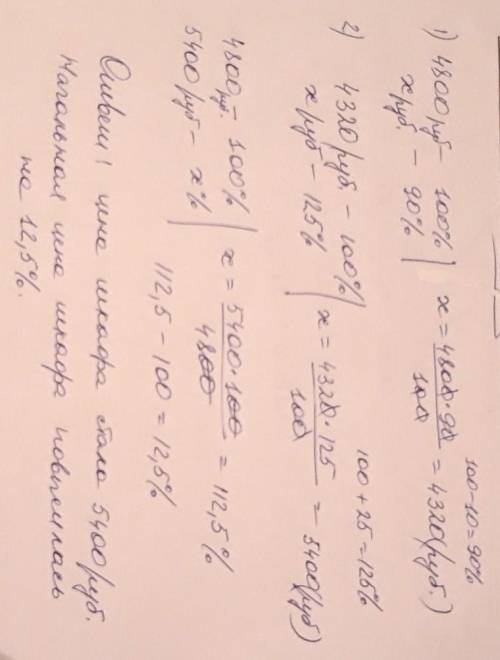 100-10=90%
1) 4800 руб - 100% | x = 4800·90/100 = 4320(руб.)
x руб. - 90%
100+25=125%
2) 4320 руб - 100% | x = 4320·125/100 = 5400(руб)
x руб - 125%
4800 руб. - 100% | x = 5400·100/4800 = 112,5%
5400 руб - x%
112,5 - 100 = 12,5%
Ответ: цена шкафа стала 5400 руб.
Начальная цена шкафа повысилась
на 12,5%.